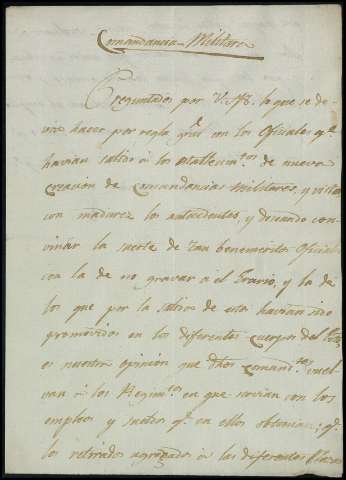 Comandancias Militares
Preguntados por V. A. S. lo que se de-
via hacer por regla gral con los Oficiales qe
havian salido á los establecimtos de nueva
creacion de Comandancias Militares, y visto
con madurez los antecedentes, y deseando con-
vinár la suerte de tan benemeritos Oficiales
con la de no gravar á el Erario, y la de
los que por la salida de estos havian sido
promovidos en los diferentes cuerpos del
es nuestra opinión que dhos Comandtes vuel-
van á los Regimtos en que servian con los
empleos y sueldos qe en ellos obtenian; qe
los retirados agregados á las diferentes Plazas